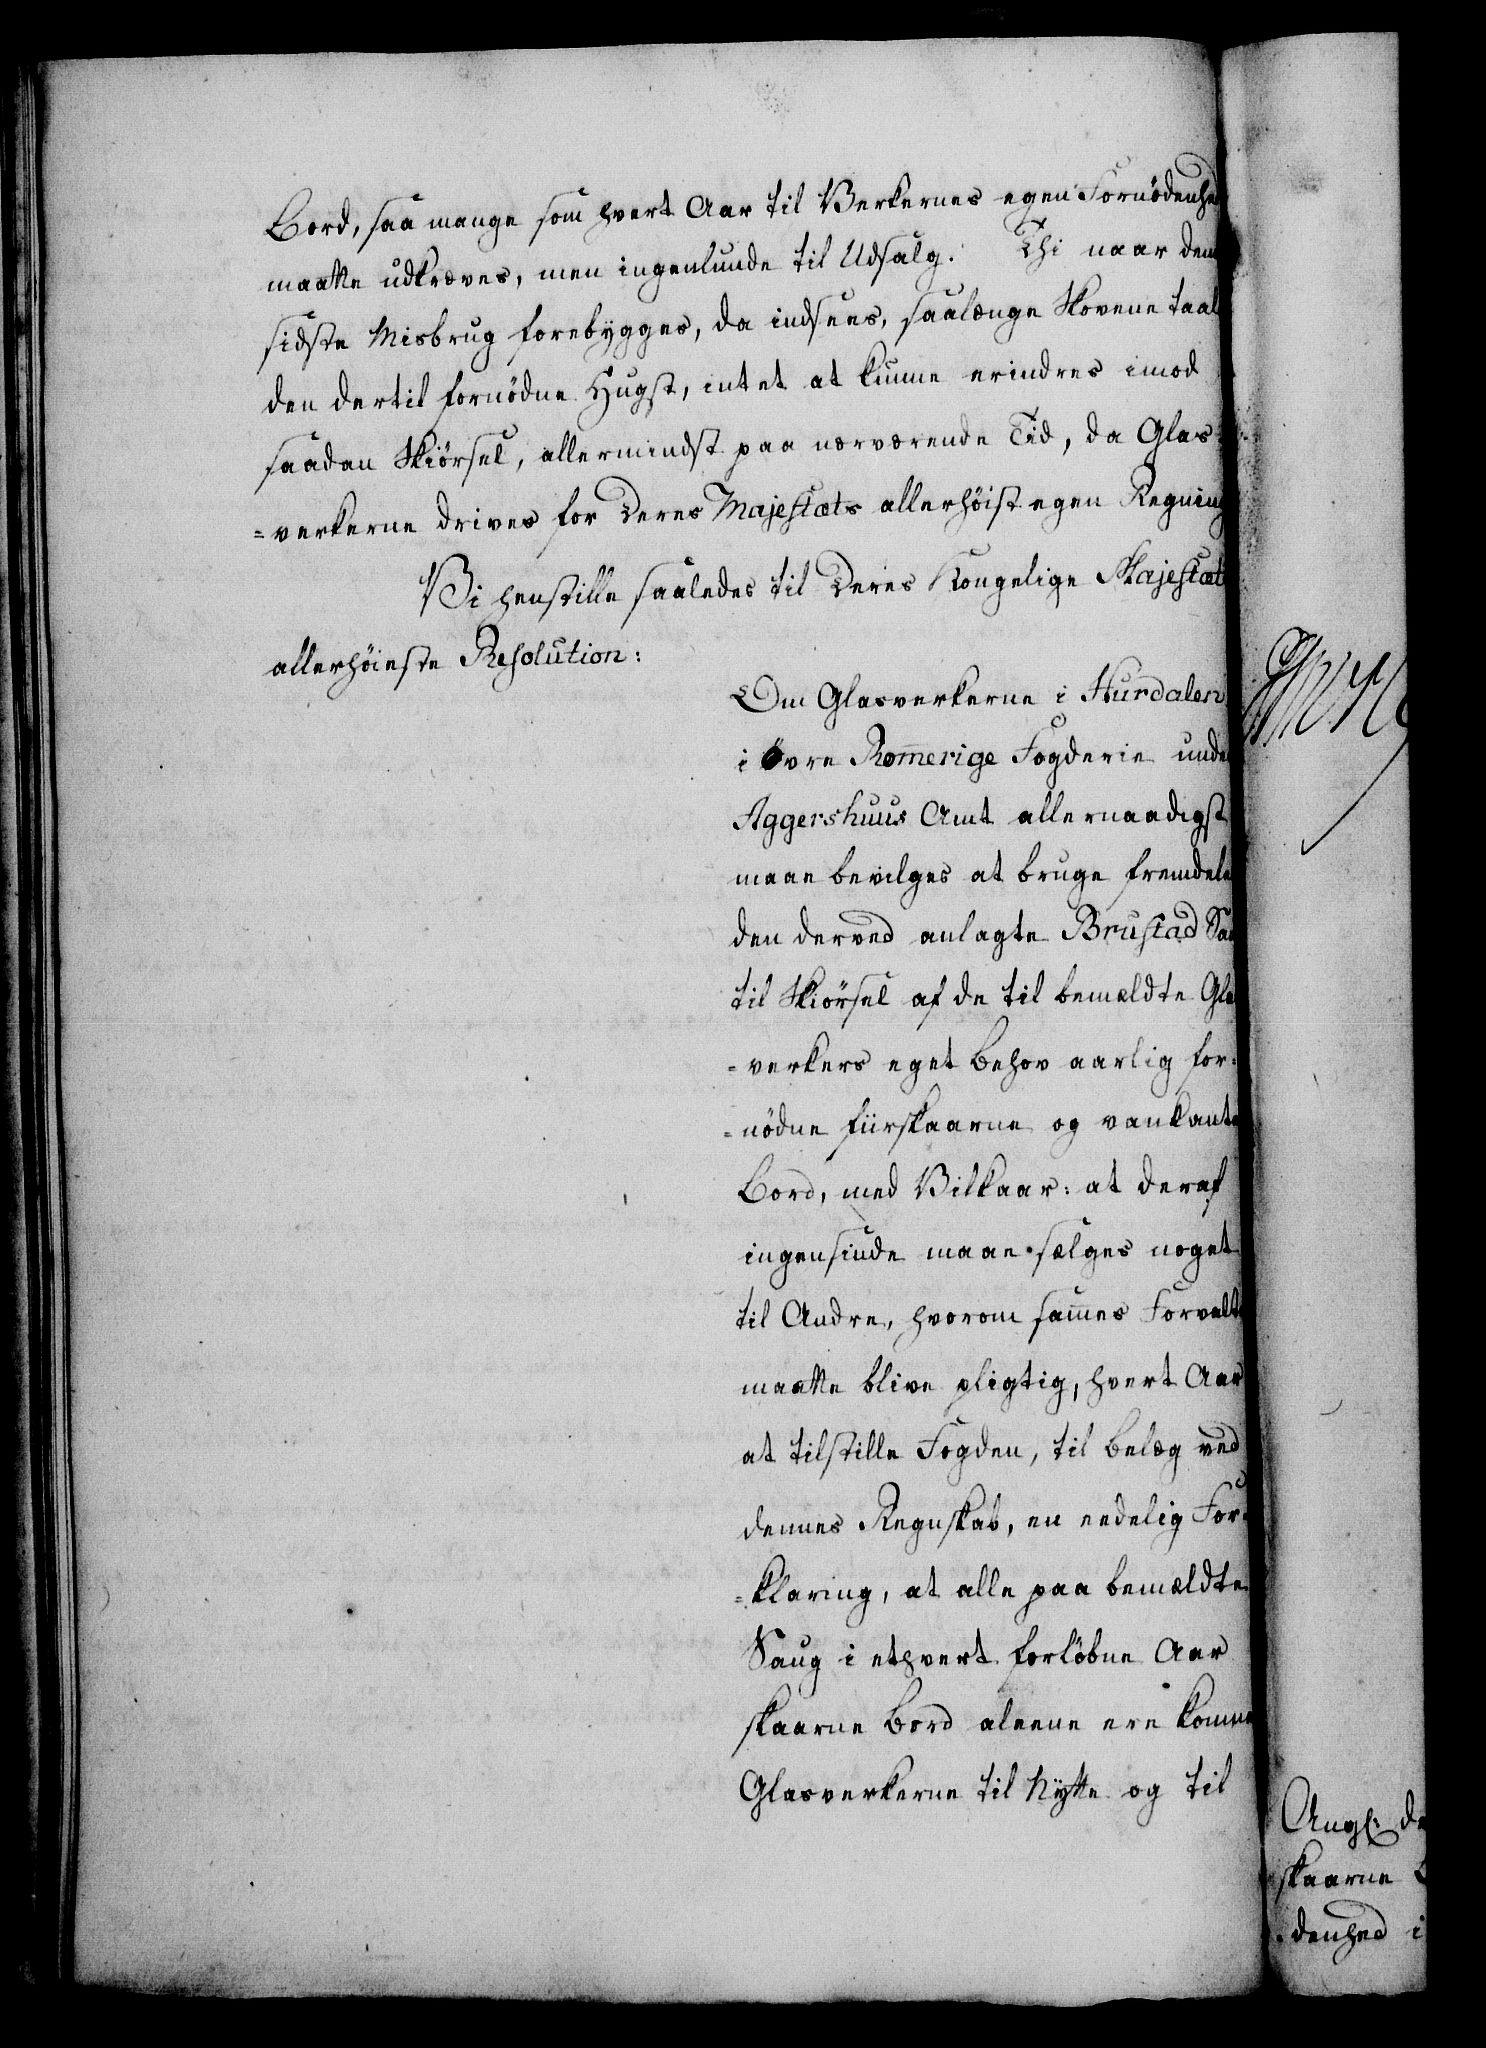 Bord, saa mange som hvert Aar til Verkernes egen Fornödenhe
maatte udkræves, men ingenlunde til Udsalg. Thi naar den
sidste Misbrug forebygges, da indsees, saalænge Skovene taal
den dertil fornödne Hugst, intet at kunne erindres imod
saadan Skiörsel, allermindst paa nærværende Tid, da Glas-
=verkerne drives for Deres Majestæts allerhöist egen Regning
Vi henstille saaledes til Deres Kongelige Majestæts
allerhöieste Resolution:
Om Glasverkerne i Hurdalen
i Övre Rom̅erige Fogderie unde
Aggershuus Amt allernaadigst
maae bevilges at bruge fremdele
den derved anlagte Brustad Sau
til Skiörsel af de til bemældte Gla
=verkers eget Behov aarlig for=
=nödne fiirskaarne og vankante
Bord, med Vilkaar: at deraf
ingensinde maae sælges noget
til Andre, hvorom sam̅es Forvalt
maatte blive pligtig, hvert Aar
at tilstille Fogden, til Belæg ved
dennes Regnskab, en eedelig For=
=klaring, at alle paa bemældte
Saug i ethvert forlöbne Aar
skaarne Bord aleene ere komne
Glasverkerne til Nytte og til
Ang: de
skaarne B
=denhed i